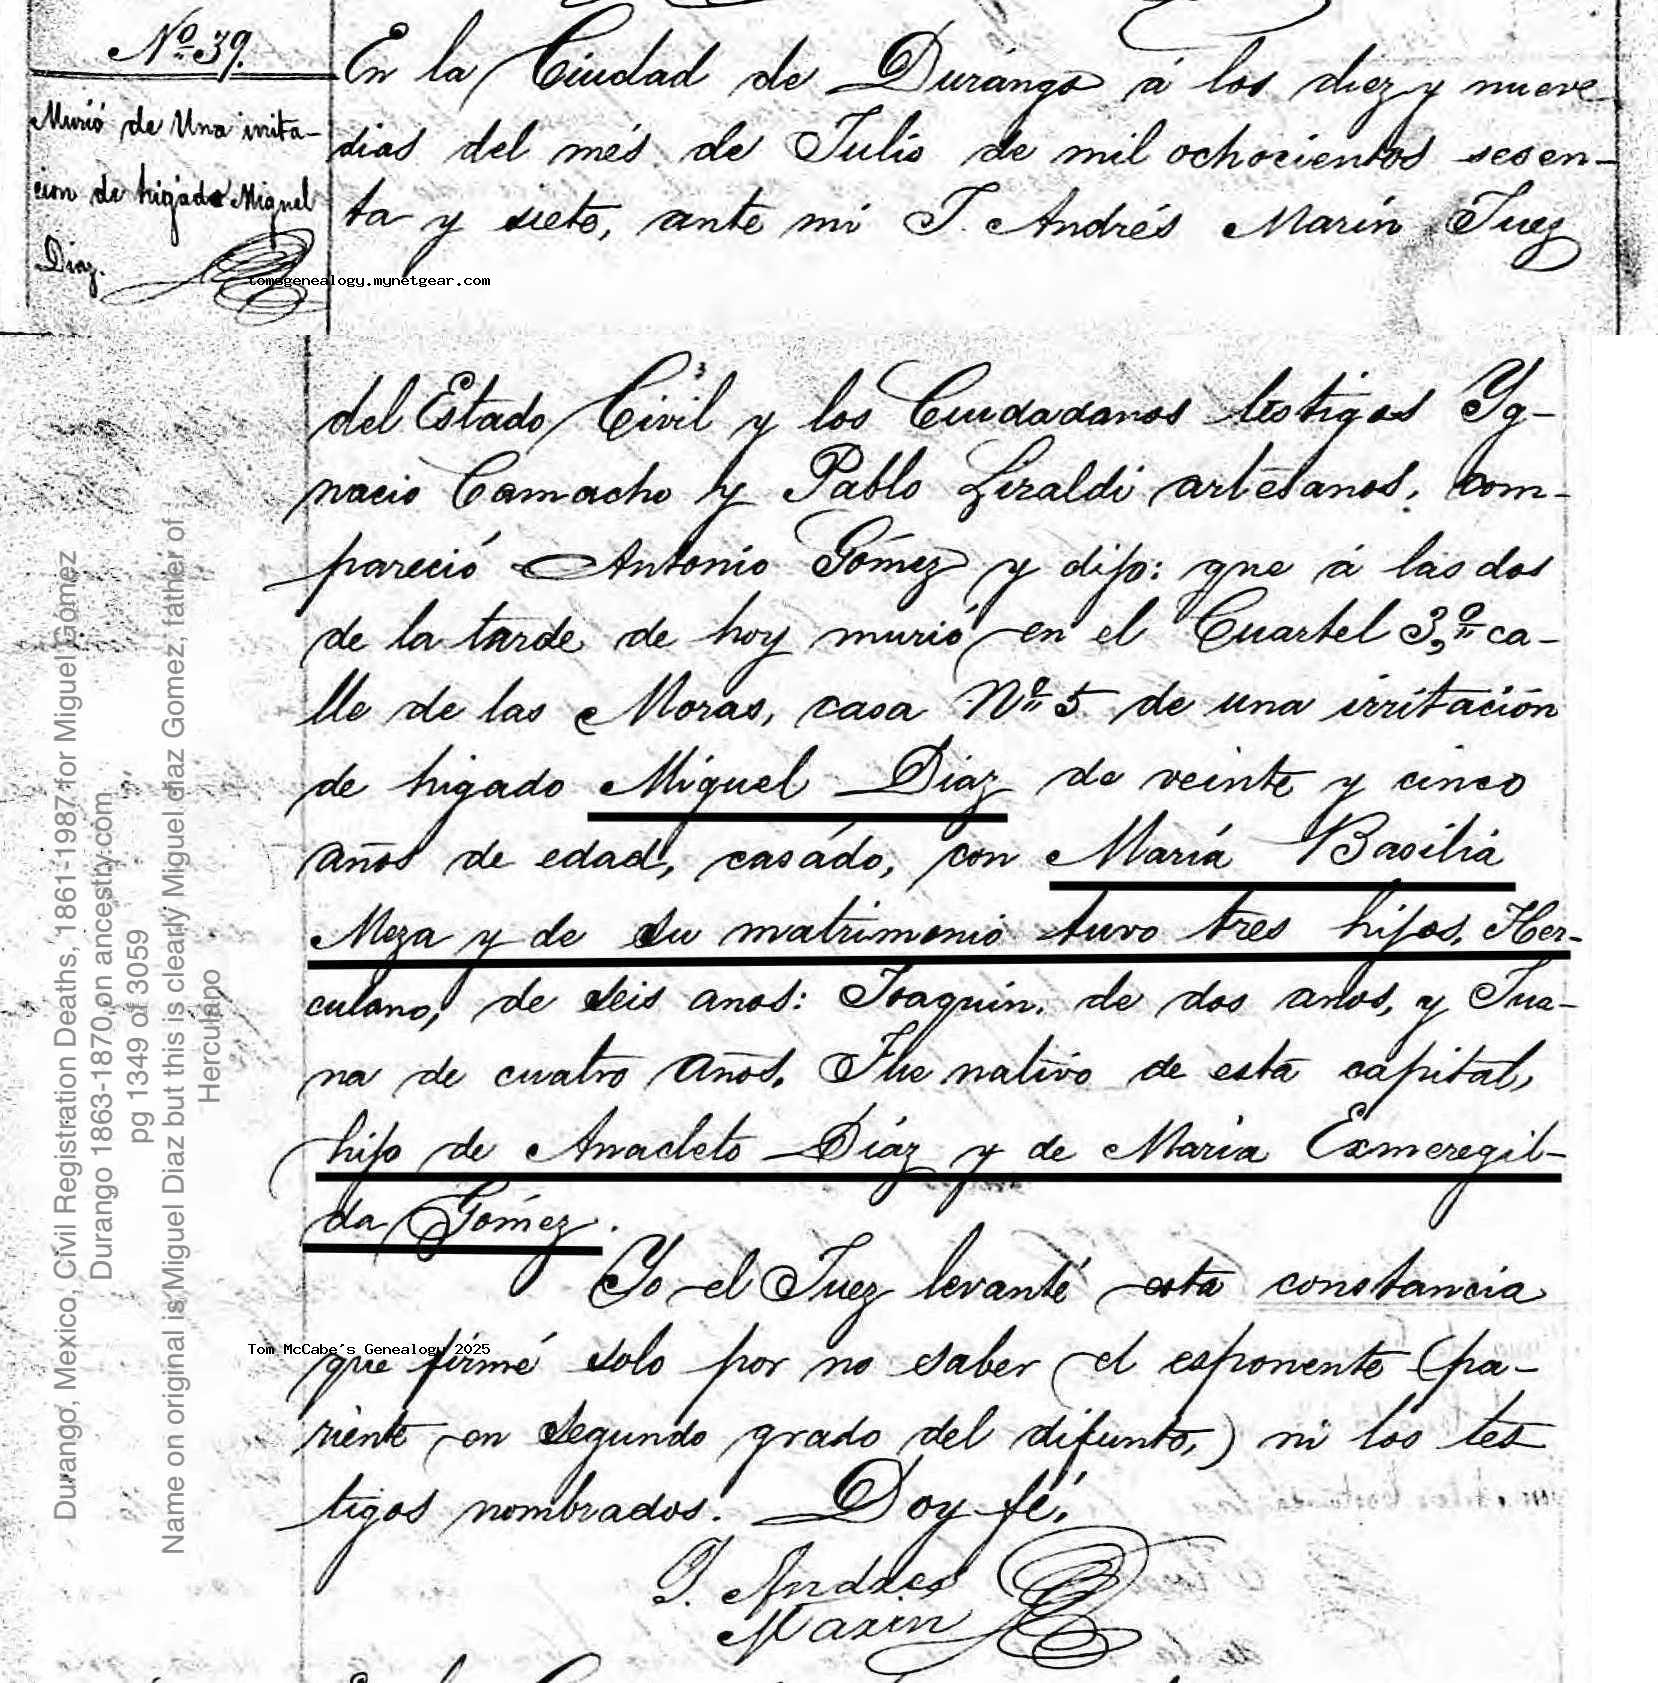 Nº 39.
Murió de Una irrita-
cion de higado Miguel
Diaz.
En la Ciudad de Durango á los diez y nueve
dias del més de Julio de mil ochocientos sesen-
ta y siete, ante mi J. Andrés Marin Juez
tomsgenealogy.mynetgear.com
del Estado Civil y los Ciudadanos testigos Yg-
nacio Camacho y Pablo Liraldi artesanos, com-
pareció Antonio Gómez y dijo: que á las dos
de la tarde de hoy murió en el Cuartel 3º ca-
lle de las Moras, casa Nº 5 de una irritación
de higado Miguel Diaz de veinte y cinco
años de edad, casádo, con María Basilia
Meza y de su matrimonio tuvo tres hijos, Her-
culano, de seis anos: Joaquin, de dos anos, y Jua-
na de cuatro años. Fue nativo de esta capital,
hijo de Anacleto Díaz y de Maria Exmeregil-
da Gómez.
Yo el Juez levanté esta constancia
que firmé solo por no saber el esponente (pa-
riente en segundo grado del difunto,) ni los tes
tigos nombrados. Doy fé.
J. Andres
Marin
Tom McCabe's Genealogy 2025
Durango, Mexico, Civil Registration Deaths, 1861-1987 for Miguel Gomez
Durango 1863-1870, on ancestry.com
pg 1349 of 3059
Name on original is Miguel Diaz but this is clearly Miguel diaz Gomez, father of
Herculano